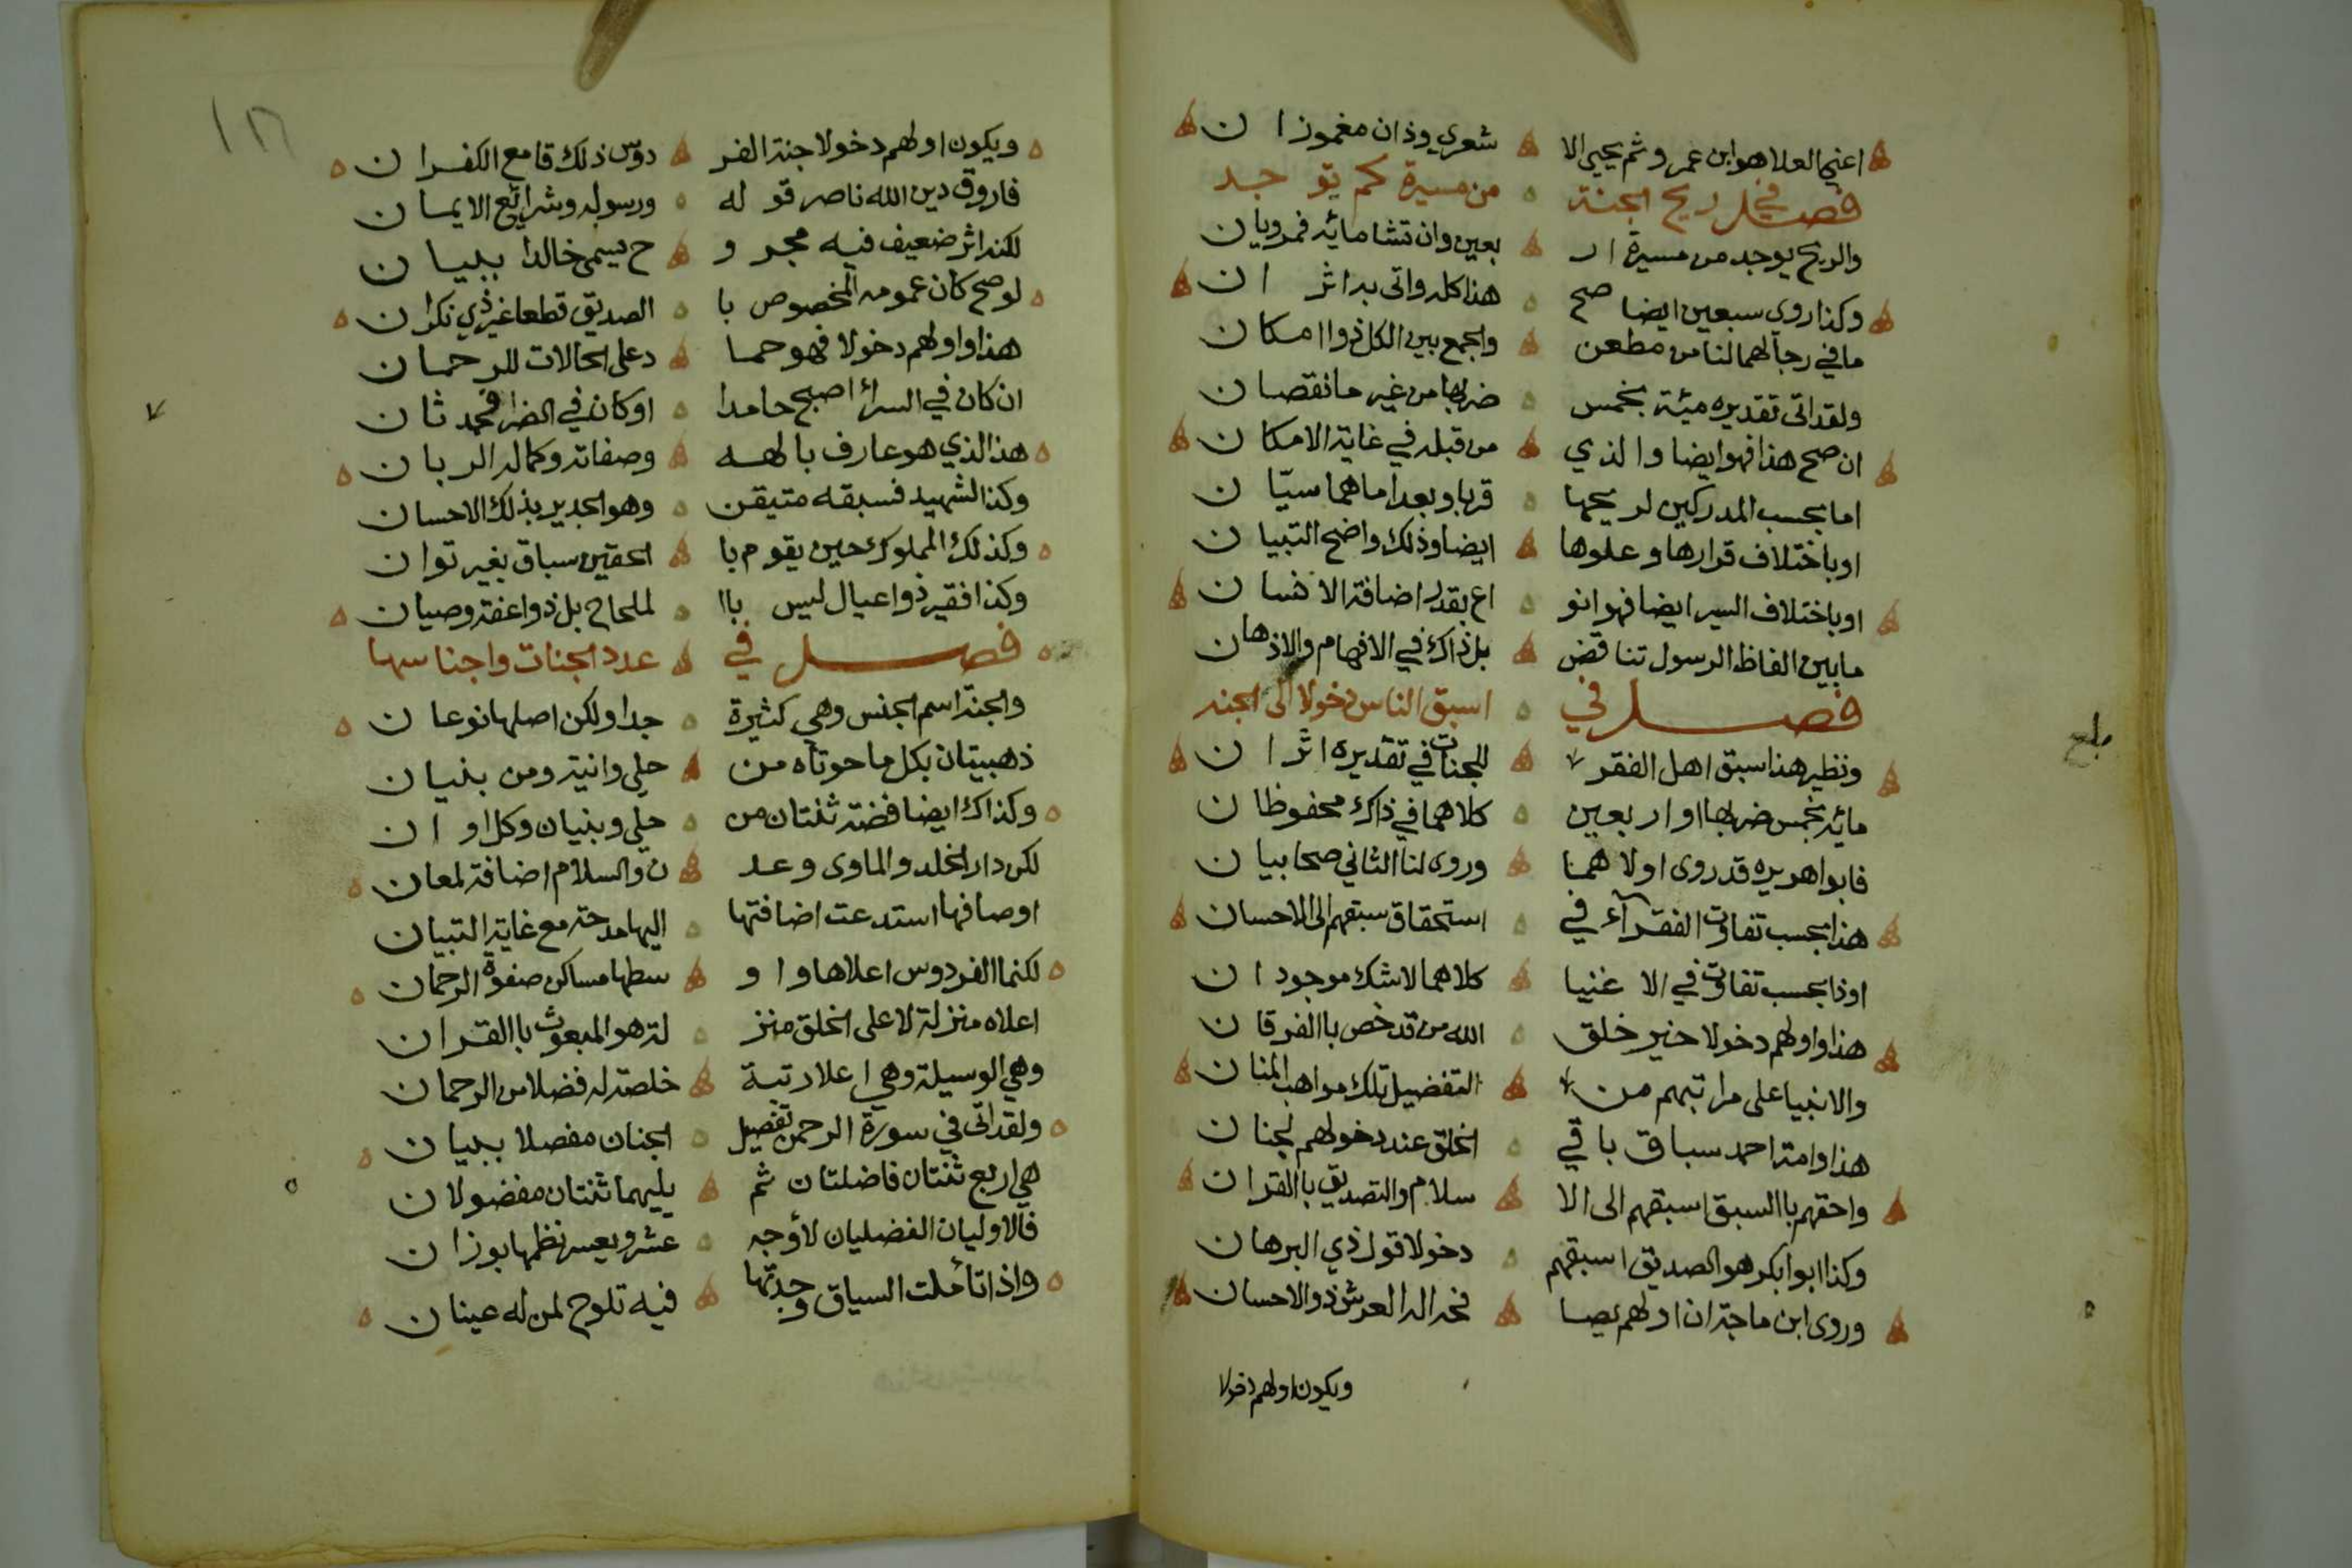 اعني العلا هو ابن عمرو ثم يحيى الا شعري وذان مغموزا ن
فصل في ريح الجنة من مسيرة كم توجد
والريح يوجد من مسيرة ار بعين وان تشا مائة فمرويان
وكذا روي سبعين ايضا صح هذا كله واتى به اثرا ن
ما في رجالهما لنا من مطعن والجمع بين الكل ذوا امكان
ولقد اتى تقديره مئة بخمس ضربها من غير ما نقصان
ان صح هذا فهو ايضا والذي من قبله في غاية الامكان
اما بحسب المدركين لريحها قربا وبعدا ما هما سيّان
او باختلاف قرارها وعلوها ايضا وذلك واضح التبيان
او باختلاف السير ايضا فهو انو اع بقدر اضافة الانسان
ما بين الفاظ الرسول تناقض بل ذاك في الافهام والاذهان
فصل في اسبق الناس دخولا الى الجنه
ونظير هذا سبق اهل الفقر للجنات في تقديره اثرا ن
مائه بخمس ضربها او اربعين كلاهما في ذاك محفوظان
فابوا هريره قد روى اولاهما وروى لنا الثاني صحابيان
هذا بحسب تفاوت الفقرآء في استحقاق سبقهم الى الاحسان
او ذا بحسب تفاوت في الاغنيا كلاهما لا شك موجودان
هذا واولهم دخولا خير خلق الله من قد خص باالفرقان
والانبيا على مراتبهم من التفضيل تلك مواهب المنان
هذا وامة احمد سباق باقي الخلق عند دخولهم لجنان
واحقهم باالسبق اسبقهم الى الا سلام والتصديق باالقران
وكذا ابوا بكر هو الصديق اسبقهم دخولا قول ذي البرهان
وروى ابن ماجة ان اولهم يصا فحه اله العرش ذو الاحسان
ويكون اولهم دخولا
بلغ
ويكون اولهم دخولا جنة الفر دوس ذلك قامع الكفران
فاروق دين الله ناصر قوله ورسوله وشرائع الايمان
لكنه اثر ضعيف فيه مجرو ح يسمى خالدا ببيان
لو صح كان عمومه المخصوص با الصديق قطعا غير ذي نكران
هذا واولهم دخولا فهو حما د على الحالات للرحمان
ان كان في السراء اصبح حامدا او كان في الضرا فحمد ثان
هذا الذي هو عارف بالهه وصفاته وكماله الربان
وكذا الشهيد فسبقه متيقن وهو الجدير بذلك الاحسان
وكذلك المملوك حين يقوم با الحقين سباق بغير توان
وكذا فقير ذوا عيال ليس باا لملحاح بل ذوا عفة وصيان
فصل في عدد الجنات واجناسها
والجنة اسم الجنس وهي كثيرة جدا ولكن اصلها نوعان
ذهبيتان بكل ما حوتاه من حلي وانية ومن بنيان
وكذاك ايضا فضة ثنتان من حلي وبنيان وكل اوا ن
لكن دار الخلد والماوى وعد ن والسلام اضافة لمعان
اوصافها استدعت اضافتها اليها مدحة مع غاية التبيان
لكنما الفردوس اعلاها واو سطها مساكن صفوة الرحمان
اعلاه منزلة لاعلى الخلق منز لة هو المبعوث باالقران
وهي الوسيلة وهي اعلا رتبة خلصت له فضلا من الرحمان
ولقد اتى في سورة الرحمن تفضيل الجنان مفصلا ببيان
هي اربع ثنتان فاضلتان ثم يليهما ثنتان مفضولان
فالاوليان الفضليان لأوجه عشر ويعسر نظمها بوزان
واذا تأملت السياق وجدتها فيه تلوح لمن له عينان